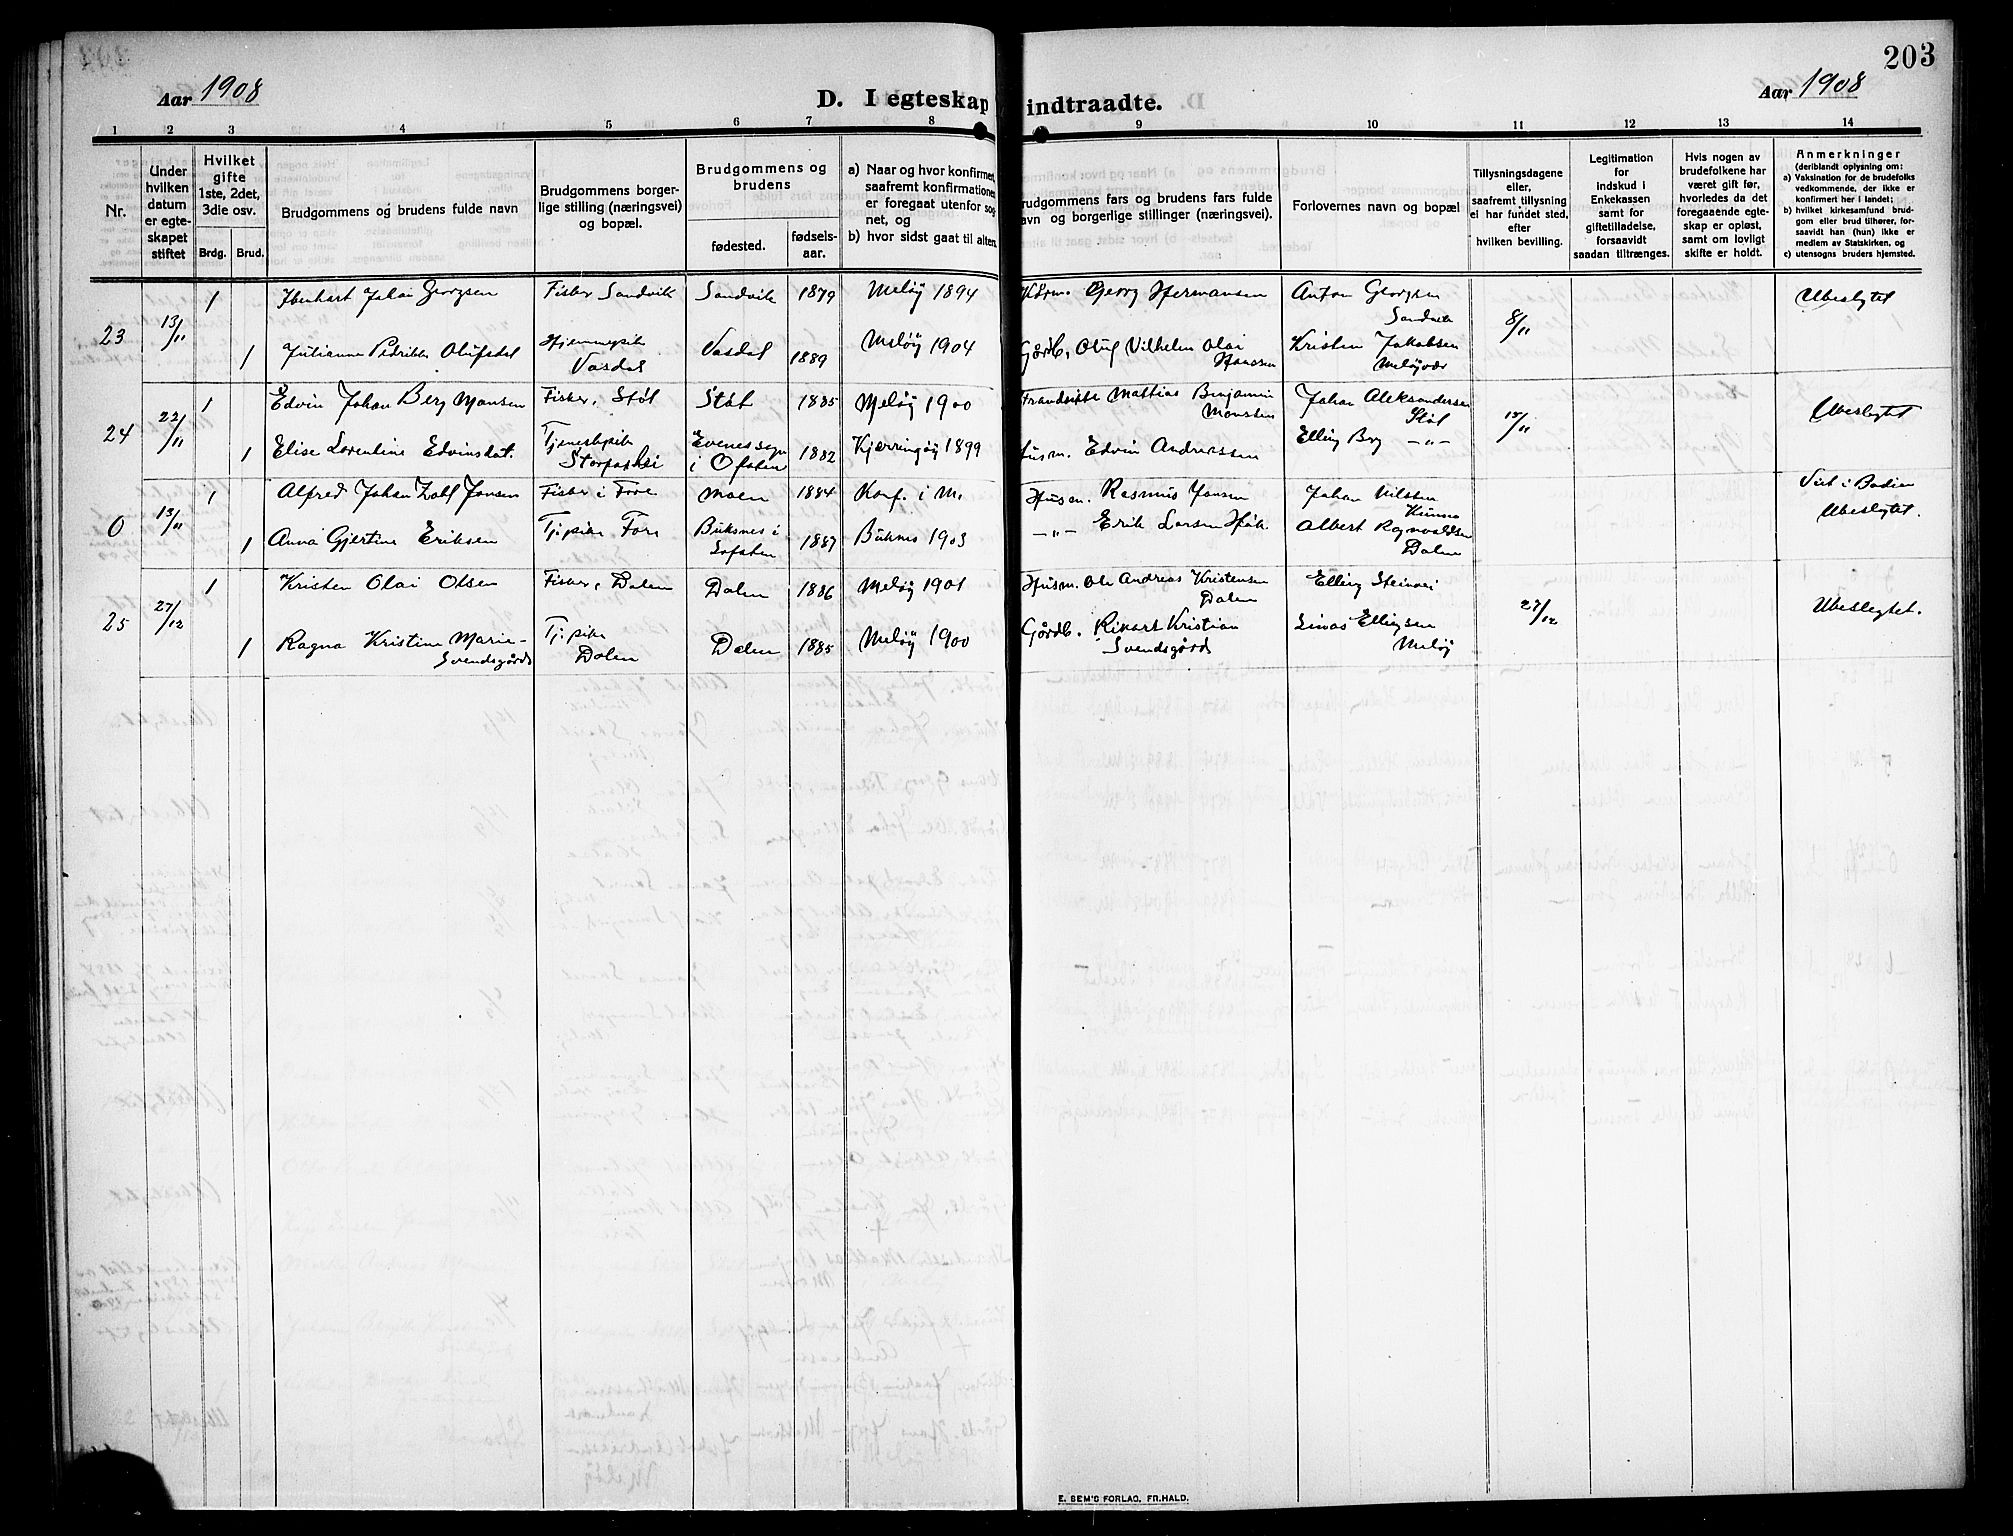 203
Aar 1908
D. I egteskap indtraadte.
Aar 1908
1 2 3 4 5 6 7 8 9 10 11 12 13 14
Nr.
Under hvilken datum er egteskapet stiftet
Hvilket gifte 1ste, 2det, 3die osv.
Brdg. Brud.
Brudgommens og brudens fulde navn
Brudgommens borgerlige stilling (næringsvei) og bopæl.
Brudgommens og brudens
fødested.
fødselsaar.
a) Naar og hvor konfirmert, saafremt konfirmationen er foregaat utenfor sognet, og
b) hvor sidst gaat til alters.
Brudgommens fars og brudens fars fulde navn og borgerlige stillinger (næringsvei).
Forlovernes navn og bopæl
Tillysningsdagene eller, saafremt tillysning ei har fundet sted, efter hvilken bevilling.
Legitimation for indskud i Enkekassen samt for giftetilladelse, forsaavidt saadan tiltrænges.
Hvis nogen av brudefolkene har været gift før, hvorledes da det foregaaende egteskap er opløst, samt om lovligt skifte er holdt.
Anmerkninger
(deriblandt oplysning om:
a) Vaksination for de brudefolks vedkommende, der ikke er konfirmert her i landet;
b) hvilket kirkesamfund brudgom eller brud tilhører, forsaavidt han (hun) ikke er medlem av Statskirken, og
c) utensogns bruders hjemsted.
23 13/11
1 Johai Georgsen Fisker Sandvik Sandvik 1879 Meløy 1894 Georg Hermansen Anton Georgsen Sandvik 8/11 Ubeslegtet
1 Julianna Olufsdat Hjemmepike Vasdal Vasdal 1889 Meløy 1904 Gårdb. Oluf Vilhelm Olai Hansen Kristen Jakobsen Meløyvær
24 22/11
1 Edvin Johan Berg Monsen Fisker, Støt Støt 1885 Meløy 1900 Mattias Benjamin Monsen Johan Aleksandersen Støt 15/11 Ubeslegtet
1 Elise Lorentine Edvinsdat. Tjenestepike Evenes sogn i Ofoten 1882 Kjærringøy 1899 Husm. Edvin Andreassen Elling Berg —"—
0 13/11
1 Alfred Johan Jansen Fisker i Fore Moen 1884 Konf. i M. Husm. Rasmus Jansen Johan Nilsen Kunna Viet i Bodin Ubeslegtet.
1 Anna Gjertine Eriksen Tj.pike Fore Buksnes i Lofoten 1887 Buknes 1903 —"— Erik Larsen Albert Ragnvaldsen Dalen
25 27/12
1 Kristen Olai Olsen Fisker, Dalen Dalen 1886 Meløy 1901 Husm. Ole Andreas Kristensen Dalen Elling Steinvei 27/12 Ubeslegtet.
1 Ragna Kristine Marie Svendsgård Tj.pike Dalen Dalen 1885 Meløy 1900 Gårdb. Rikart Kristian Svendsgård Linas Ellingsen Meløy
E. SEM'S FORLAG, FR.HALD.